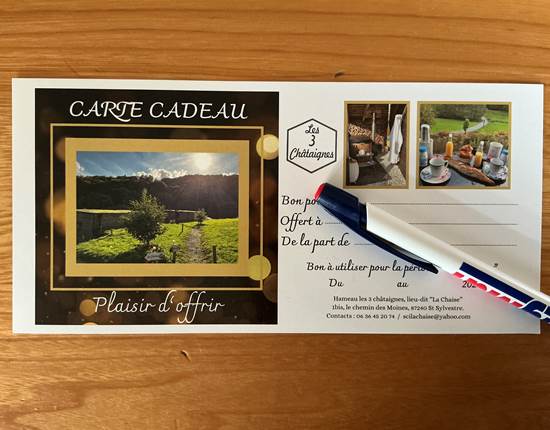 CARTE CADEAU
Plaisir d'offrir
Les
3
Châtaignes
Bon
Offert à
De la part de
Bon à utiliser pour la
Du au 202
Hameau les 3 châtaignes, lieu-dit "La Chaise"
1bis, le chemin des Moines, 87240 St Sylvestre.
Contacts : 06 36 45 20 74 / scilachaise@yahoo.com